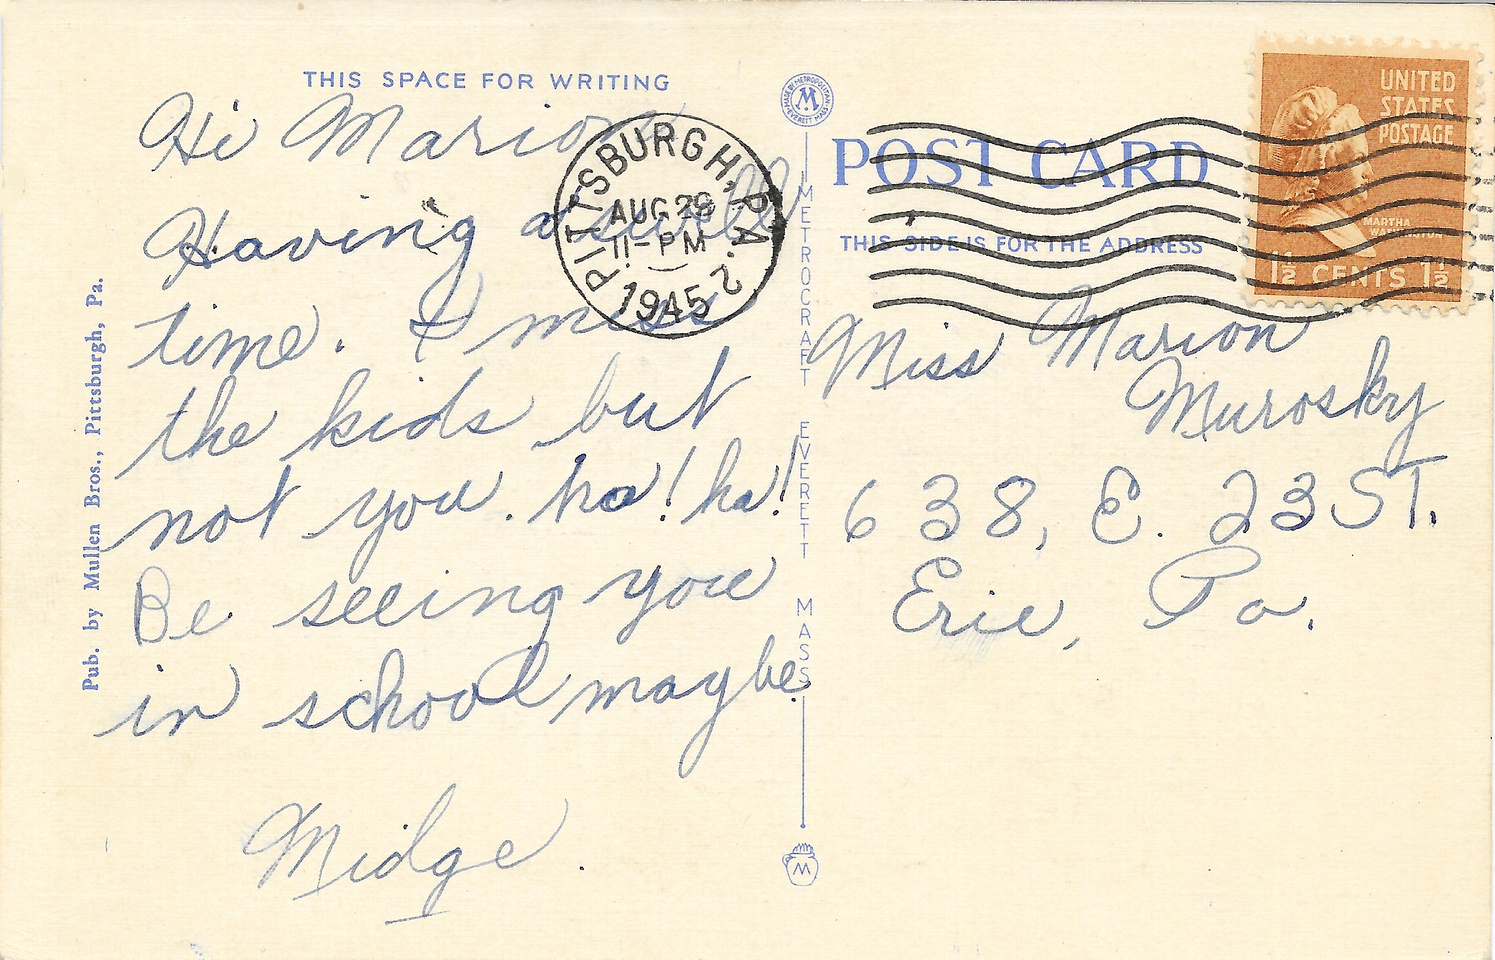 THIS SPACE FOR WRITING
Hi Marion
Having a swell
time. I miss
the kids but
not you. ha! ha!
Be seeing you
in school maybe
Midge.
Pub. by Mullen Bros., Pittsburgh, Pa.
MADE BY METROPOLITAN
EVERETT MASS.
M
METROCRAFT EVERETT MASS
M
PITTSBURGH, PA. 2
AUG 28
11-PM
1945
POST CARD
THIS SIDE IS FOR THE ADDRESS
UNITED
STATES
POSTAGE
MARTHA
WASHINGTON
1½ CENTS 1½
Miss Marion
Murosky
638, E. 23 ST.
Erie, Pa.